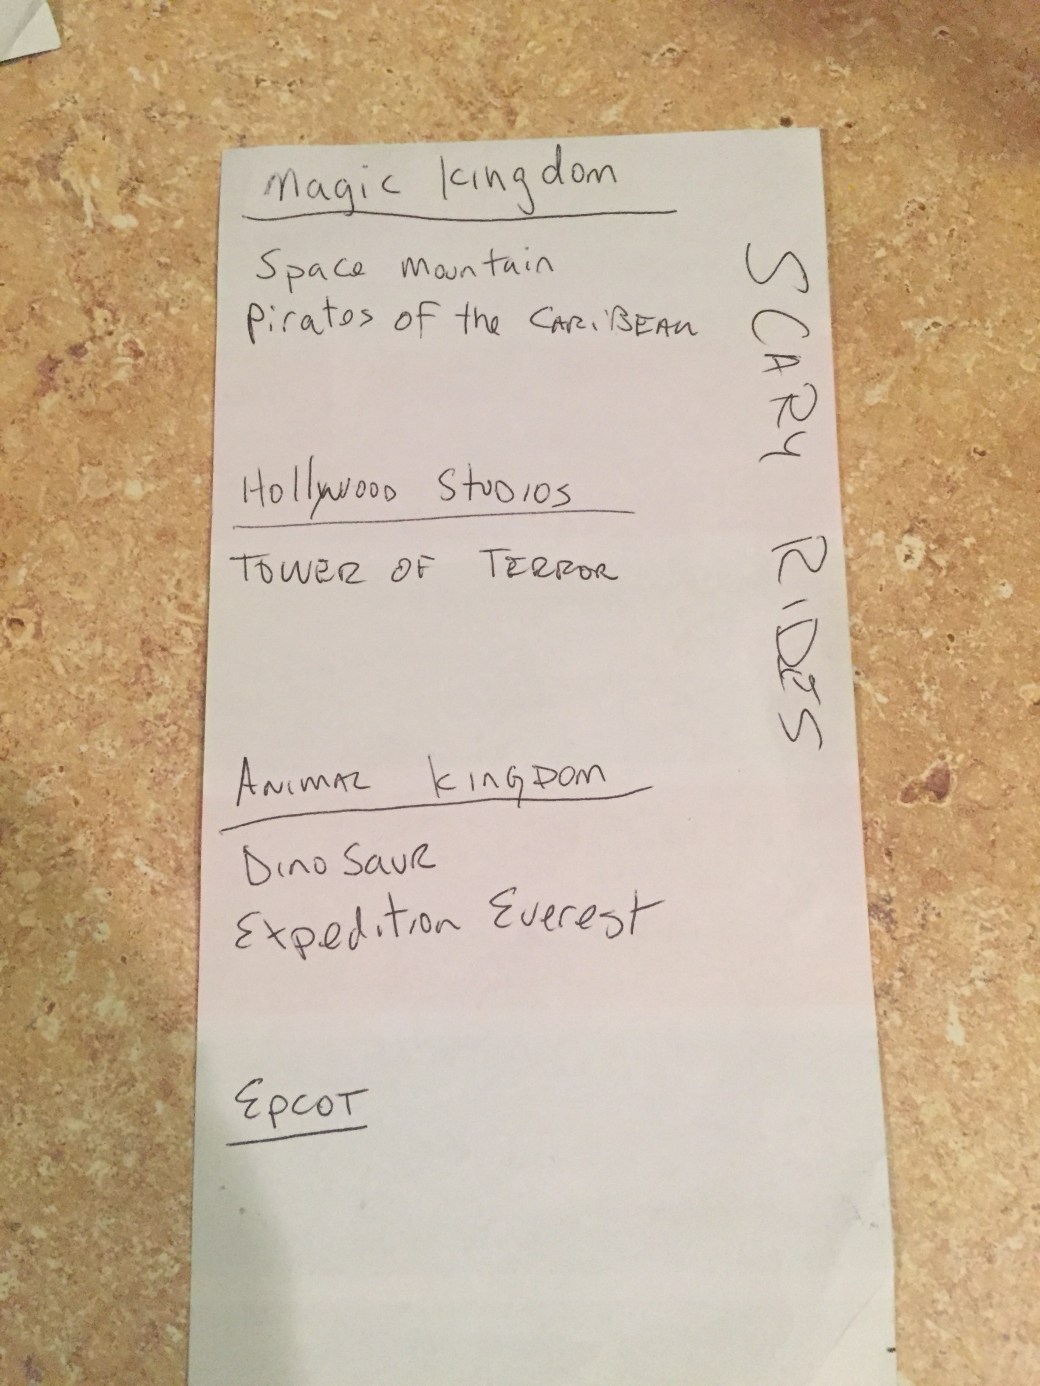 Magic Kingdom
Space Mountain
Pirates of the CARiBEAN
Hollywood StuDIOS
TOWER OF TERROR
ANiMAL KINGDOM
DinoSauR
Expedition Everest
EpcoT
SCARY RIDES